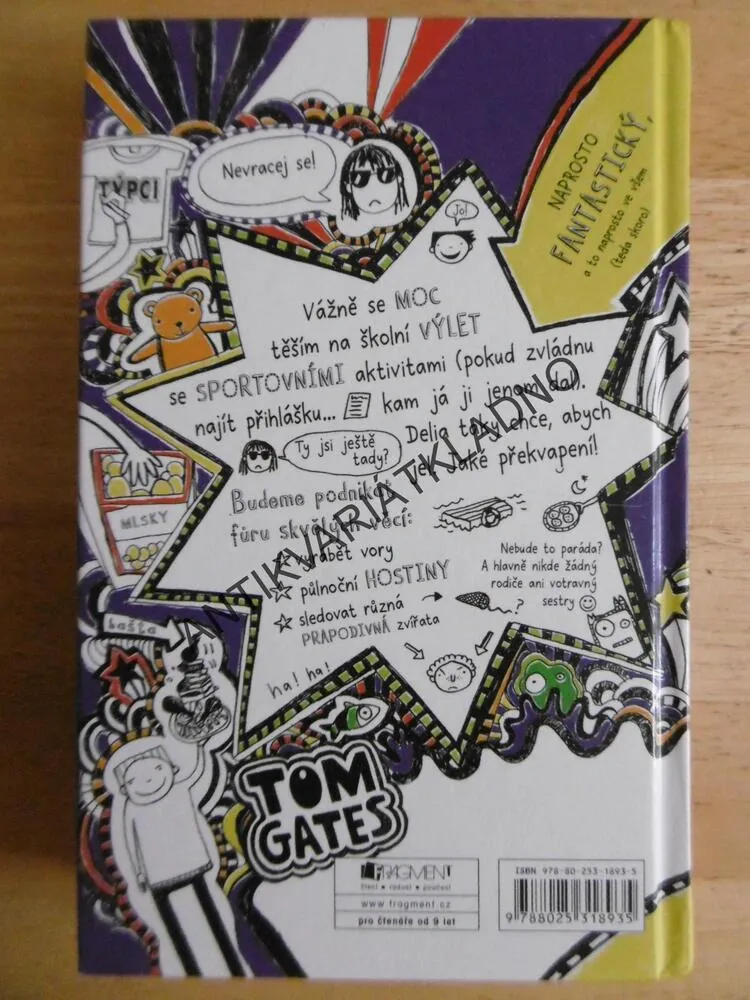 Nevracej se!
TÝPCI
NAPROSTO
FANTASTICKÝ,
a to naprosto ve všem
(teda skoro)
Jo!
Vážně se MOC
těším na školní VÝLET
se SPORTOVNÍMI aktivitami (pokud zvládnu
najít přihlášku... kam já ji jenom dal).
Delia taky chce, abych
jel. Jaké překvapení!
Ty jsi ještě
tady?
Budeme podnikat
fůru skvělých věcí:
vyrábět vory
půlnoční HOSTINY
sledovat různá
PRAPODIVNÁ zvířata
...?
Nebude to paráda?
A hlavně nikde žádný
rodiče ani votravný
sestry
MLSKY
bašta
ha! ha!
TOM
GATES
FRAGMENT
čtení • radost • poučení
www.fragment.cz
pro čtenáře od 9 let
ISBN 978-80-253-1893-5
9 788025 318935
ANTIKVARIÁTKLADNO